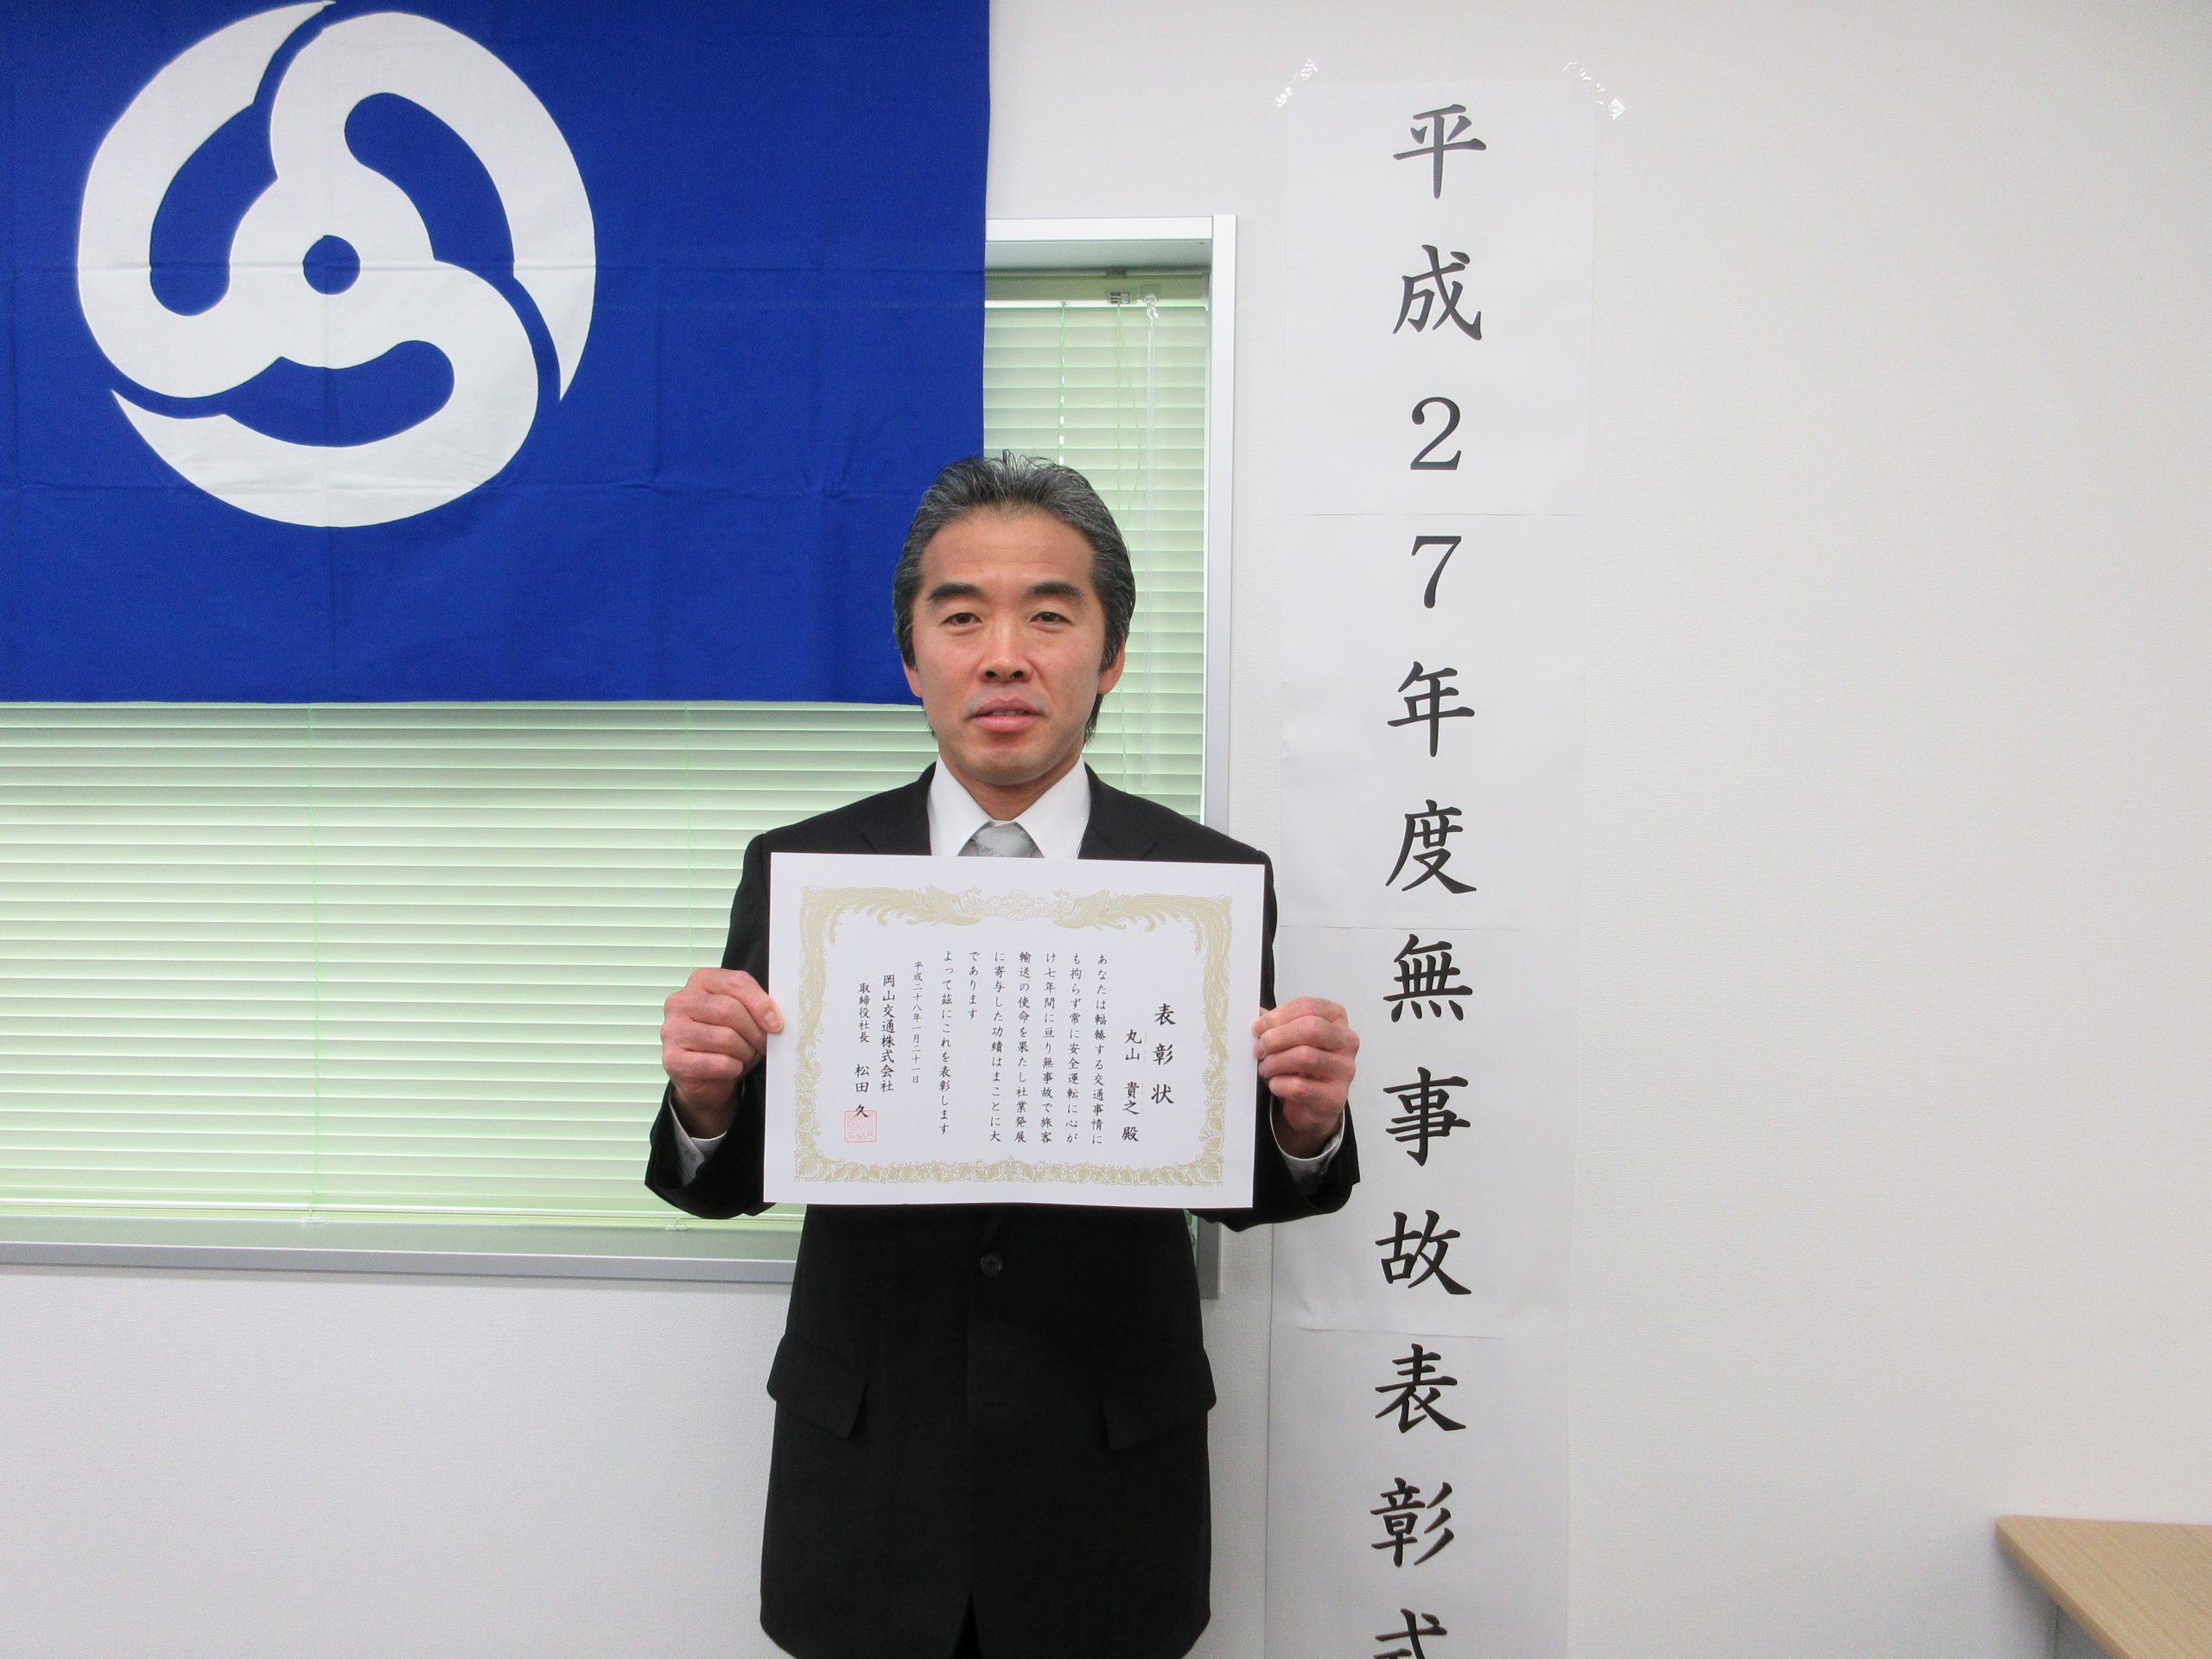 平成27年度無事故表彰式
表彰状
丸山 貴之 殿
あなたは輻輳する交通事情に
も拘らず常に安全運転に心が
け七年間に亘り無事故で旅客
輸送の使命を果たし社業発展
に寄与した功績はまことに大
であります
よって茲にこれを表彰します
平成二十八年一月二十一日
岡山交通株式会社
取締役社長 松田 久